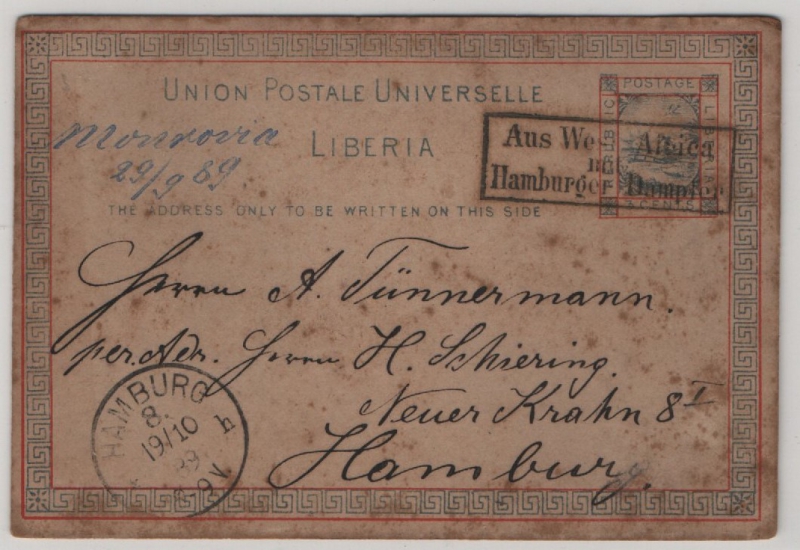 UNION POSTALE UNIVERSELLE
LIBERIA
THE ADDRESS ONLY TO BE WRITTEN ON THIS SIDE
Monrovia
29/9 89
POSTAGE
CENTS
Aus West Africa
mit
Hamburger Dampfer
Herrn A. Tünnermann.
per. Adr. Herrn H. Schiering.
Neuer Krahn 8 I
Hamburg.
HAMBURG
8.
h
19/10
89
8-9V